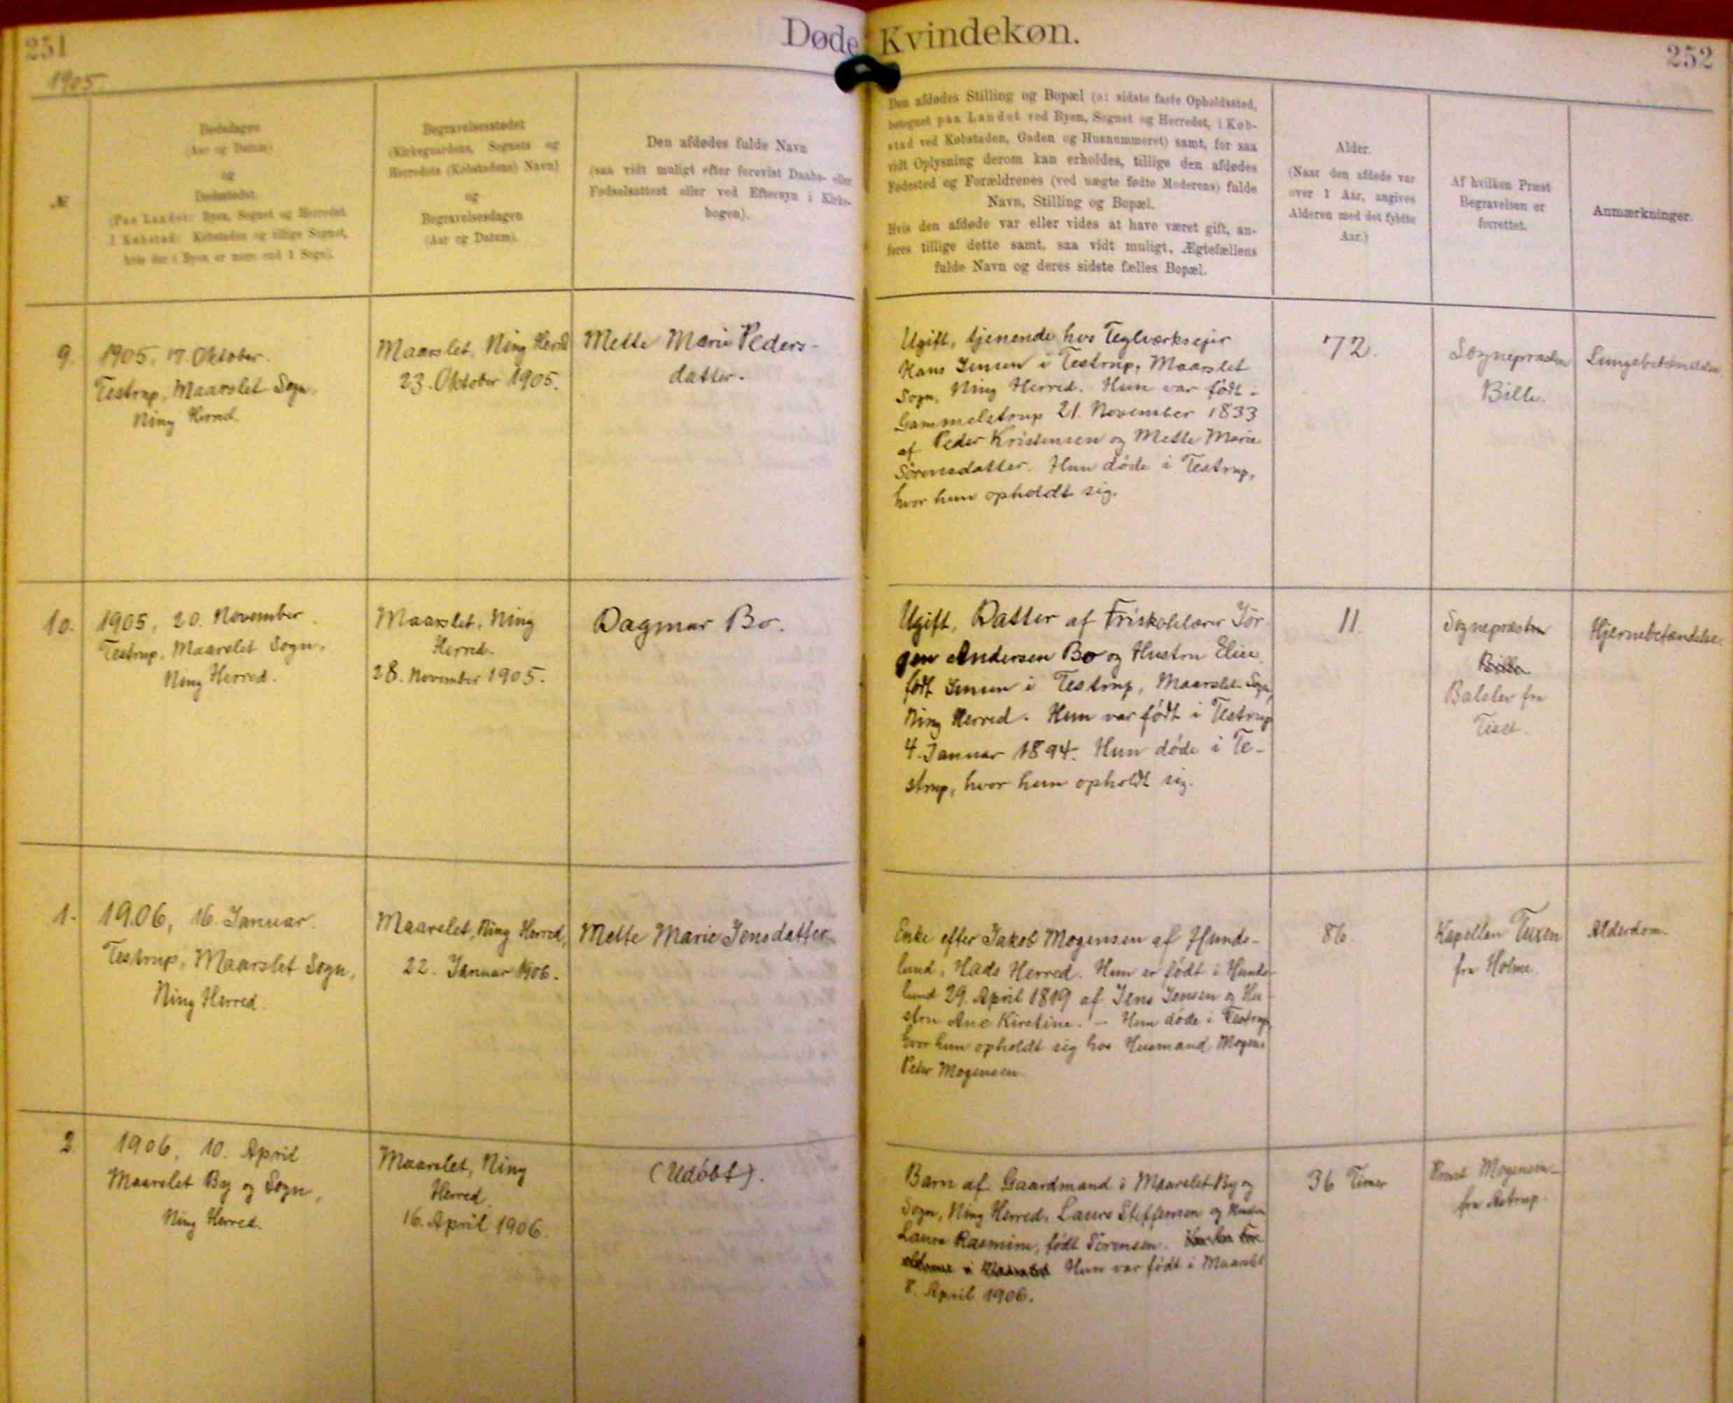 251
Døde Kvindekøn.
252
1905.
№
Dødsdagen
(Aar og Datum)
og
Dødsstedet.
(Paa Landet: Byen, Sognet og Herredet.
I Købstad: Købstaden og tillige Sognet,
hvis der i Byen er mere end 1 Sogn).
Begravelsesstedet
(Kirkegaardens, Sognets og
Herredets (Købstadens) Navn)
og
Begravelsesdagen
(Aar og Datum).
Den afdødes fulde Navn
(saa vidt muligt efter forevist Daabs- eller
Fødselsattest eller ved Eftersyn i Kirke-
bogen).
Den afdødes Stilling og Bopæl (ɔ: sidste faste Opholdssted,
betegnet paa Landet ved Byen, Sognet og Herredet, i Køb-
stad ved Købstaden, Gaden og Husnummeret) samt, for saa
vidt Oplysning derom kan erholdes, tillige den afdødes
Fødested og Forældrenes (ved uægte fødte Moderens) fulde
Navn, Stilling og Bopæl.
Hvis den afdøde var eller vides at have været gift, an-
føres tillige dette samt, saa vidt muligt, Ægtefællens
fulde Navn og deres sidste fælles Bopæl.
Alder.
(Naar den afdøde var
over 1 Aar, angives
Alderen med det fyldte
Aar.)
Af hvilken Præst
Begravelsen er
forrettet.
Anmærkninger.
9.
1905, 17. Oktober.
Testrup, Maarslet Sogn,
Ning Herred.
Maarslet, Ning Herred
23. Oktober 1905.
Mette Marie Peders-
datter.
Ugift, tjenende hos Teglværksejer
Hans Jensen i Testrup, Maarslet
Sogn, Ning Herred. Hun var født i
Gammelstrup 21. November 1833
af Peder Kristensen og Mette Marie
Sørensdatter. Hun døde i Testrup,
hvor hun opholdt sig.
72.
Sognepræsten
Bille.
Lungebetændelse
10.
1905, 20. November.
Testrup, Maarslet Sogn,
Ning Herred.
Maarslet, Ning
Herred.
28. November 1905.
Dagmar Bo.
Ugift, Datter af Friskolelærer Jør
gen Andersen Bo og Hustru Elise
født Jensen i Testrup, Maarslet Sogn,
Ning Herred. Hun var født i Testrup
4. Januar 1894. Hun døde i Te-
strup, hvor hun opholdt sig.
11.
Sognepræsten
Bille
Balslev fra
Tiset.
Hjernebetændelse.
1.
1906, 16. Januar.
Testrup, Maarslet Sogn,
Ning Herred.
Maarslet, Ning Herred,
22. Januar 1906.
Mette Marie Jensdatter
Enke efter Jakob Mogensen af Hunds-
lund, Hads Herred. Hun er født i Hunds-
lund 29. April 1819 af Jens Jensen og Hu-
stru Ane Kirstine. – Hun døde i Testrup,
hvor hun opholdt sig hos Husmand Mogens
Peter Mogensen
86.
Kapellan Tuxen
fra Holme.
Alderdom.
2
1906, 10. April
Maarslet By og Sogn,
Ning Herred.
Maarslet, Ning
Herred
16. April 1906.
(Udøbt).
Barn af Gaardmand i Maarslet By og
Sogn, Ning Herred, Laurs Steffensen og Hustru
Laura Rasmine, født Sørensen.
Hun var født i Maarslet
8. April 1906.
36 Timer
Præst Mogensen
fra Astrup.